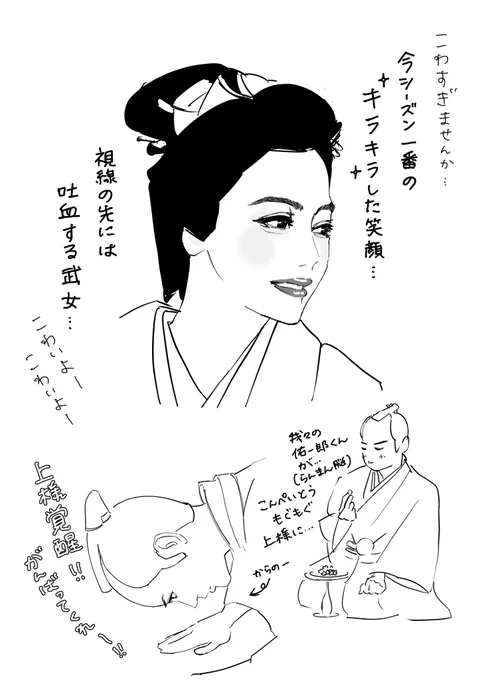 こわすぎませんか…
今シーズン一番の
キラキラした笑顔…
視線の先には
吐血する武女…
こわいよー
こわいよー
我々の
佑一郎くん
が…
(らんまん脳)
こんぺいとう
もぐもぐ
上様に…
からのー
上様覚醒!!
がんばってくれー!!